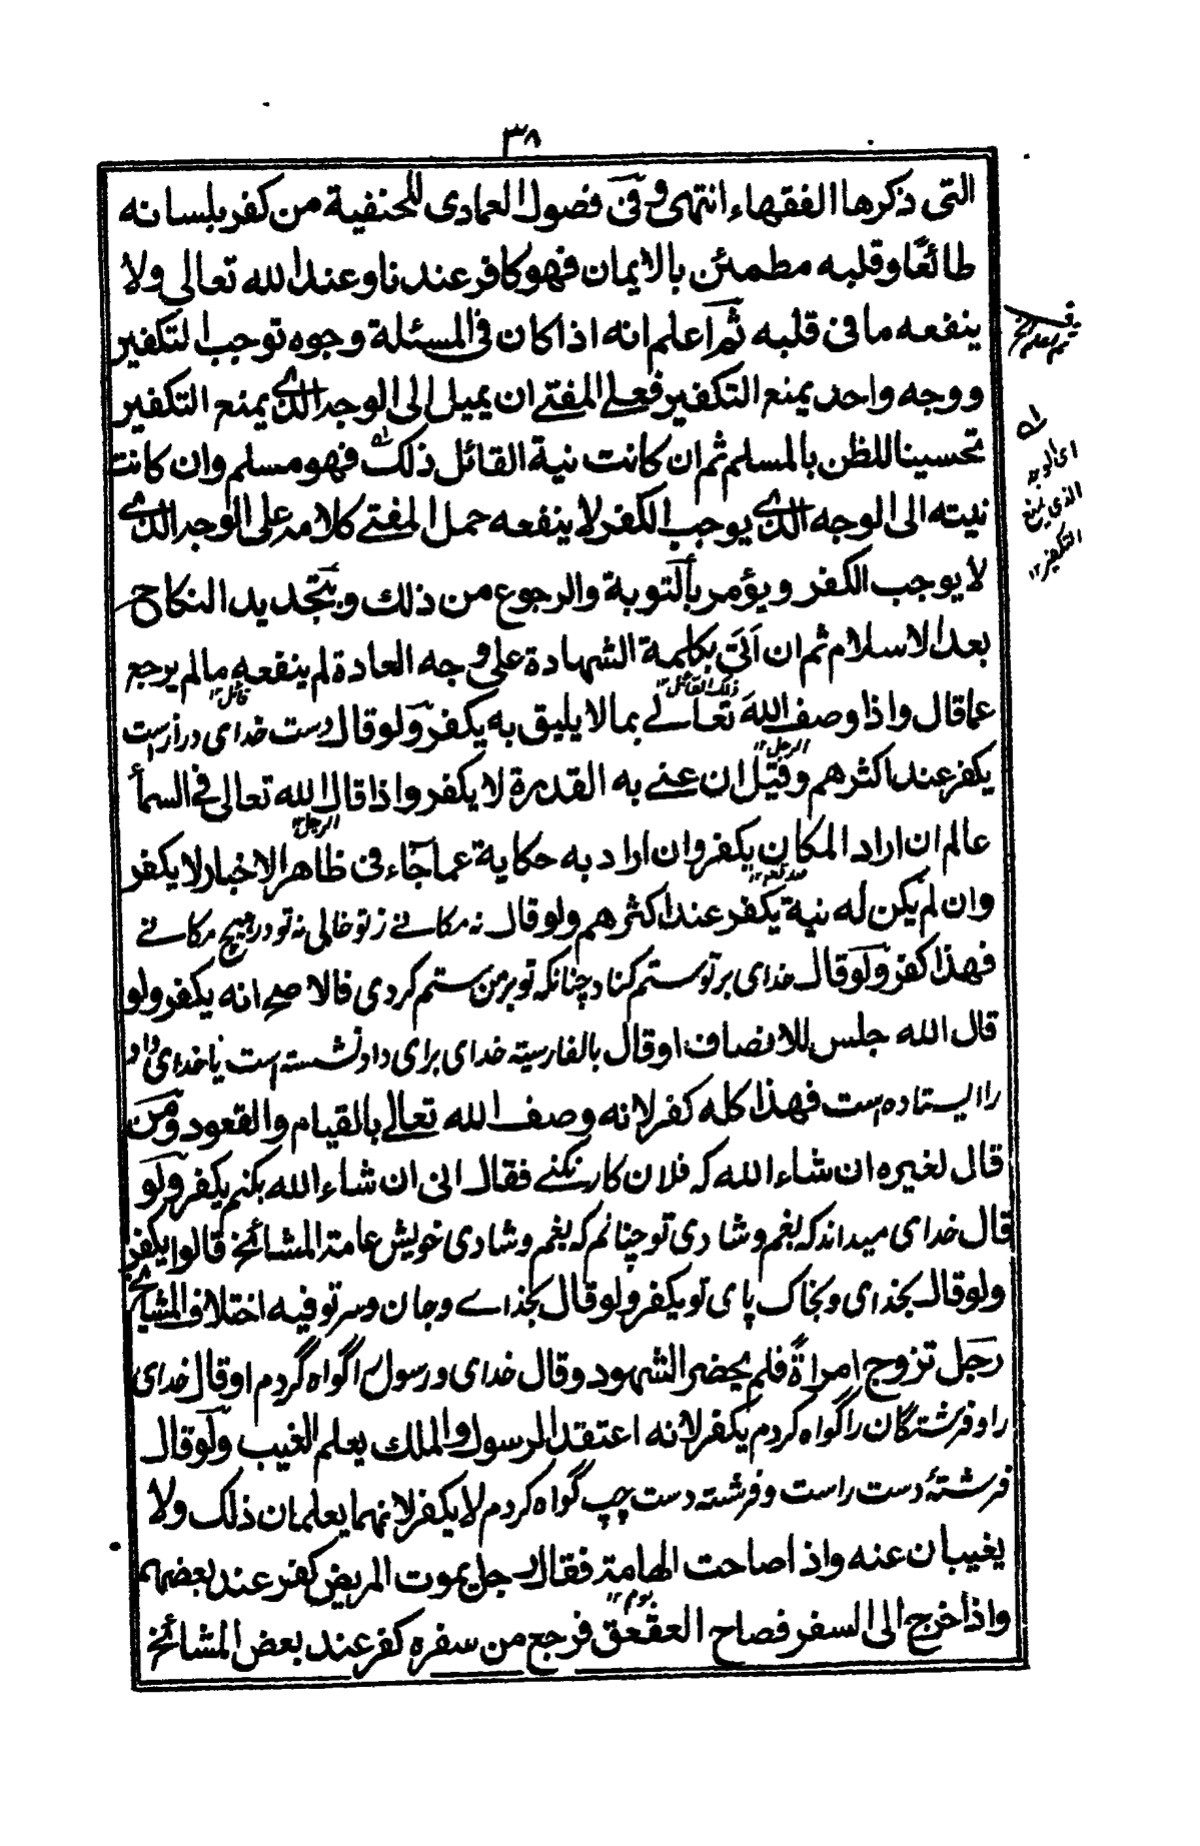 ٣٨
التى ذكرها الفقهاء انتهى وفى فصول العمادى للحنفية من كفر بلسانه
طائعًا وقلبه مطمئن بالايمان فهو كافر عندنا وعند الله تعالى ولا
ينفعه ما فى قلبه ثم اعلم انه اذا كان فى المسئلة وجوه توجب التكفير
ووجه واحد يمنع التكفير فعلى المفتے ان يميل الى الوجه الذى يمنع التكفير
تحسينا للظن بالمسلم ثم ان كانت نية القائل ذلك فهو مسلم وان كانت
نيته الى الوجه الذى يوجب الكفر لا ينفعه حمل المفتے كلامه على الوجه الذى
لا يوجب الكفر ويؤمر بالتوبة والرجوع من ذلك وبتجديد النكاح
بعد الاسلام ثم ان اتى بكلمة الشهادة على وجه العادة لم ينفعه مالم يرجع
عما قال واذا وصف الله تعالے بما لا يليق به يكفر ولو قال دست خدای دراز است
يكفر عند اكثرهم وقيل ان عنے به القدرة لا يكفر واذا قال الله تعالى فى السمأ
عالم ان اراد المكان يكفر وان اراد به حكاية عما جاء فى ظاهر الاخبار لا يكفر
وان لم يكن له نية يكفر عند اكثرهم ولو قال نہ مکانے ز تو خالی نہ تو در ہیچ مکانے
فهذا كفر ولو قال خدای بر تو ستم کناد چنانکہ تو بر من ستم کردی فالاصح انه يكفر ولو
قال الله جلس للانصاف او قال بالفارسيه خدای برای داد نشستہ است یا خدای داد
را ایستادہ است فهذا كله كفر لانه وصف الله تعالے بالقيام والقعود ومن
قال لغيره ان شاء الله کہ فلان کار نکنے فقال انى ان شاء الله بکنم يكفر ولو
قال خدای میداند کہ بغم وشادی تو چنانم کہ بغم وشادی خویش عامة المشائخ قالوا يكفر
ولو قال بخدای و بخاک پای تو يكفر ولو قال بخداے وجان وسر تو فيه اختلاف المشايخ
رجل تزوج امراة فلم يحضر الشهود وقال خدای و رسول را گواہ کردم او قال خدای
را وفرشتگان را گواہ کردم يكفر لانه اعتقد الرسول والملك يعلم الغيب ولو قال
فرشتۂ دست راست وفرشتہ دست چپ گواہ کردم لا يكفر لانهما يعلمان ذلك ولا
يغيبان عنه واذا صاحت الهامة فقال رجل يموت المريض كفر عند بعضهم
واذا خرج الى السفر فصاح العقعق فرجع من سفره كفر عند بعض المشائخ
ذلك القائل ١٢
قائل ١٢
الرجل ١٢
الرجل ١٢
بوم ١٢
ثم اعلم الخ
اى الوجه
الذى يمنع
التكفير ١٢